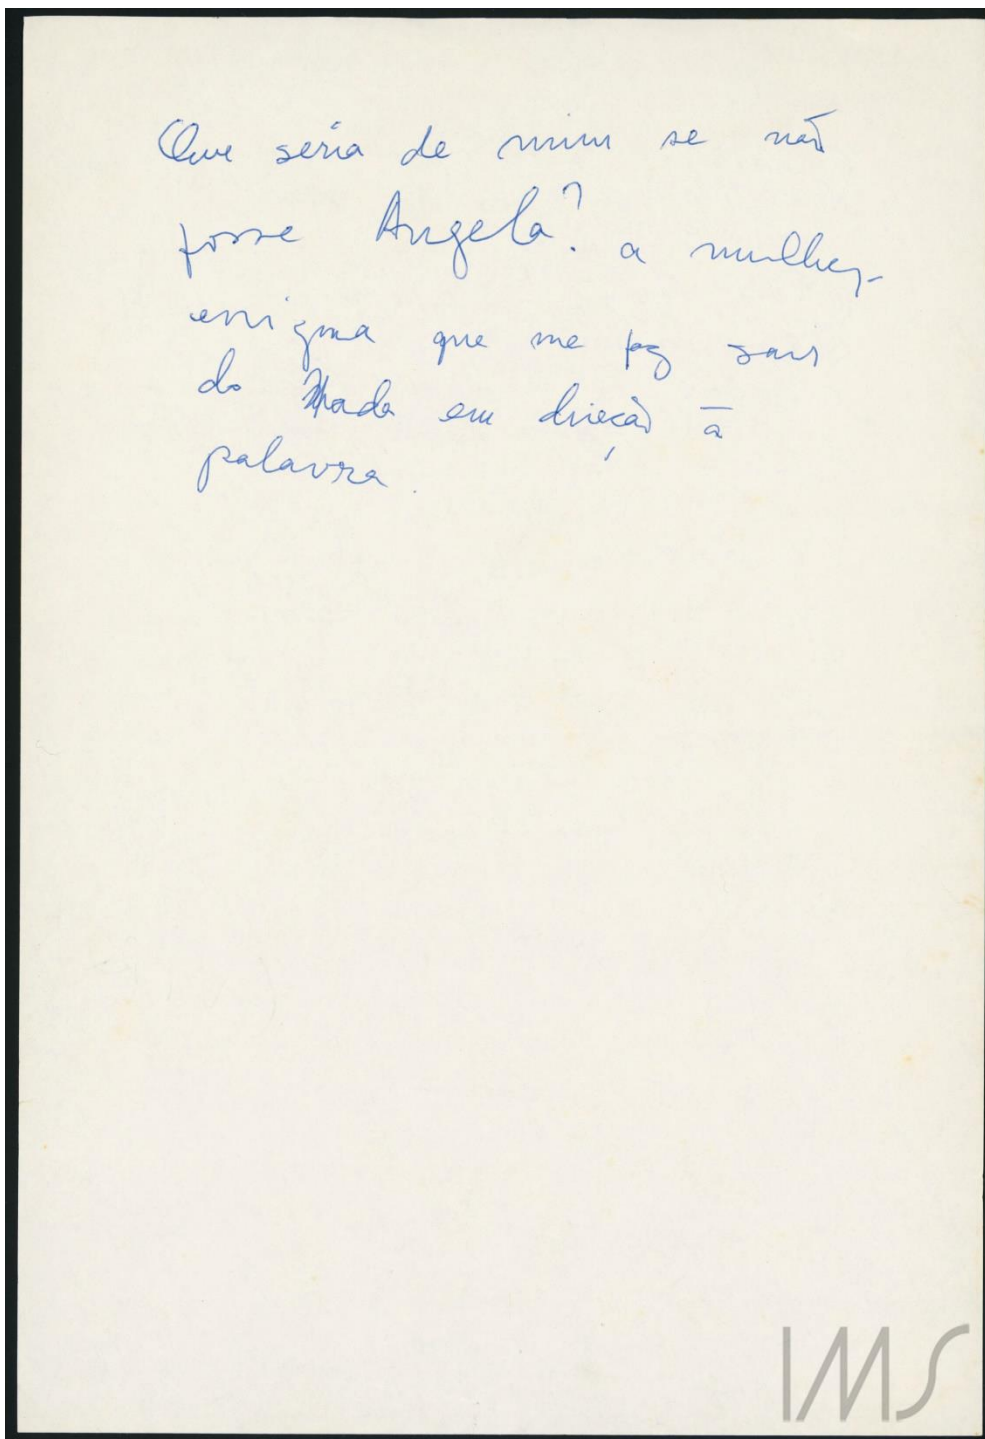 Que seria de mim se não
fosse Angela? a mulher-
enigma que me faz sair
do Nada em direção à
palavra.
IMS